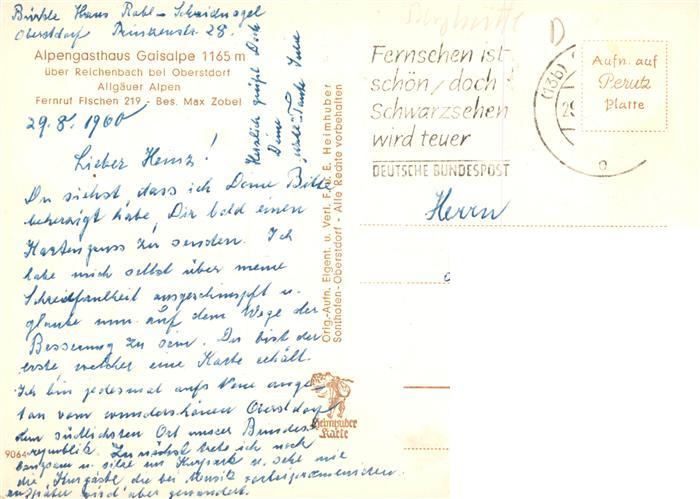 Bürkle Haus Rabl-Schraidnagel
Oberstdorf Prinzenstr 28.
Alpengasthaus Gaisalpe 1165 m
über Reichenbach bei Oberstdorf
Allgäuer Alpen
Fernruf Fischen 219 - Bes. Max Zobel
29.8.1960
Lieber Heinz!
Du siehst, dass ich Deine Bitte
beherzigt habe, Dir bald einen
Kartengruss zu senden. Ich
habe mich selbst über meine
Schreibfaulheit ausgeschimpft u.
glaube nun auf dem Wege der
Besserung zu sein. Du bist der
erste, welcher eine Karte erhält.
Ich bin jedesmal aufs Neue ange-
tan vom wunderschönen Oberstdorf
dem südlichsten Ort unserer Bundes-
republik. Zunächst trete ich noch
langsam u. sitze im Kurpark u. sehe mir
die Kurgäste die bei Musik vorbeipromenieren
später wird aber gewandert.
Herzlich grüsst Dich
Deine
Tante
9064
Orig.-Aufn. Eigent. u. Verl. F. u. E. Heimhuber
Sonthofen-Oberstdorf - Alle Rechte vorbehalten
Heimhuber
Karte
Fernsehen ist
schön, doch
Schwarzsehen
wird teuer
DEUTSCHE BUNDESPOST
(13b)
Aufn. auf
Perutz
Platte
Herrn